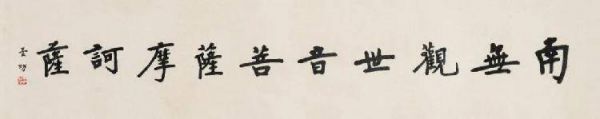 南無觀世音菩薩摩訶薩
墨功